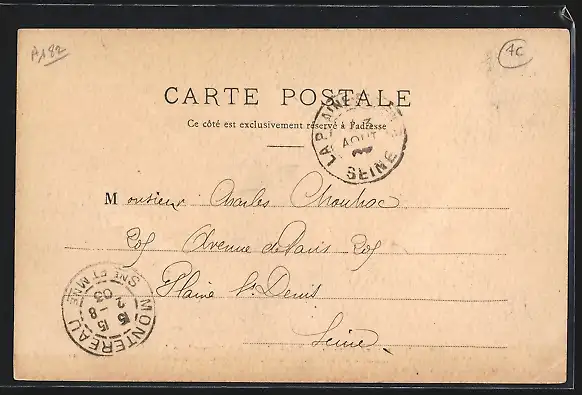 A182
4C
CARTE POSTALE
Ce côté est exclusivement réservé à l'adresse
LA PLAINE
AOUT
SEINE
Monsieur Charles Chouhac
205 Avenue de Paris 205
Plaine St Denis
Seine
MONTEREAU
SNE ET MNE
15
2-8
03